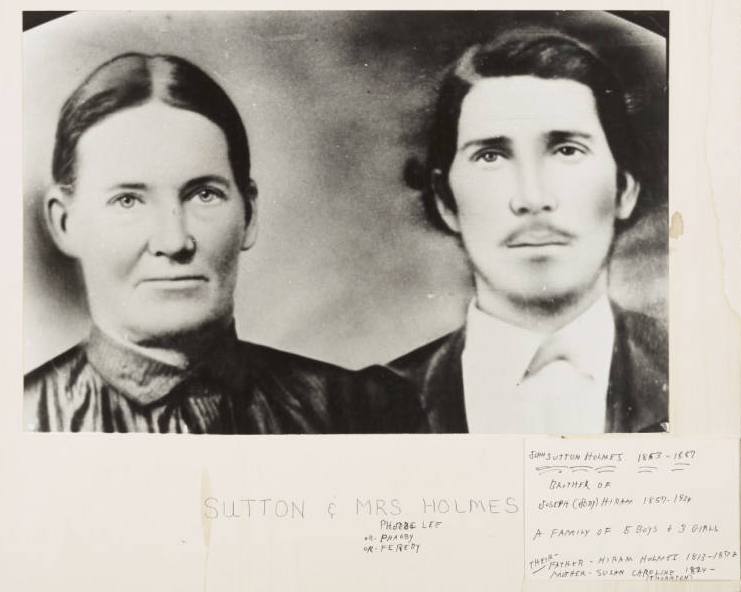 SUTTON & MRS HOLMES
PHOEBE LEE
OR- PHARBY
OR- FEREBY
JOHN SUTTON HOLMES 1853-1887
BROTHER OF
JOSEPH HIRAM 1857-
A FAMILY OF 5 BOYS + 3 GIRLS
THEIR FATHER - HIRAM HOLMES 1813-
MOTHER - SUSAN CAROLINE 1824-
(THORNTON)